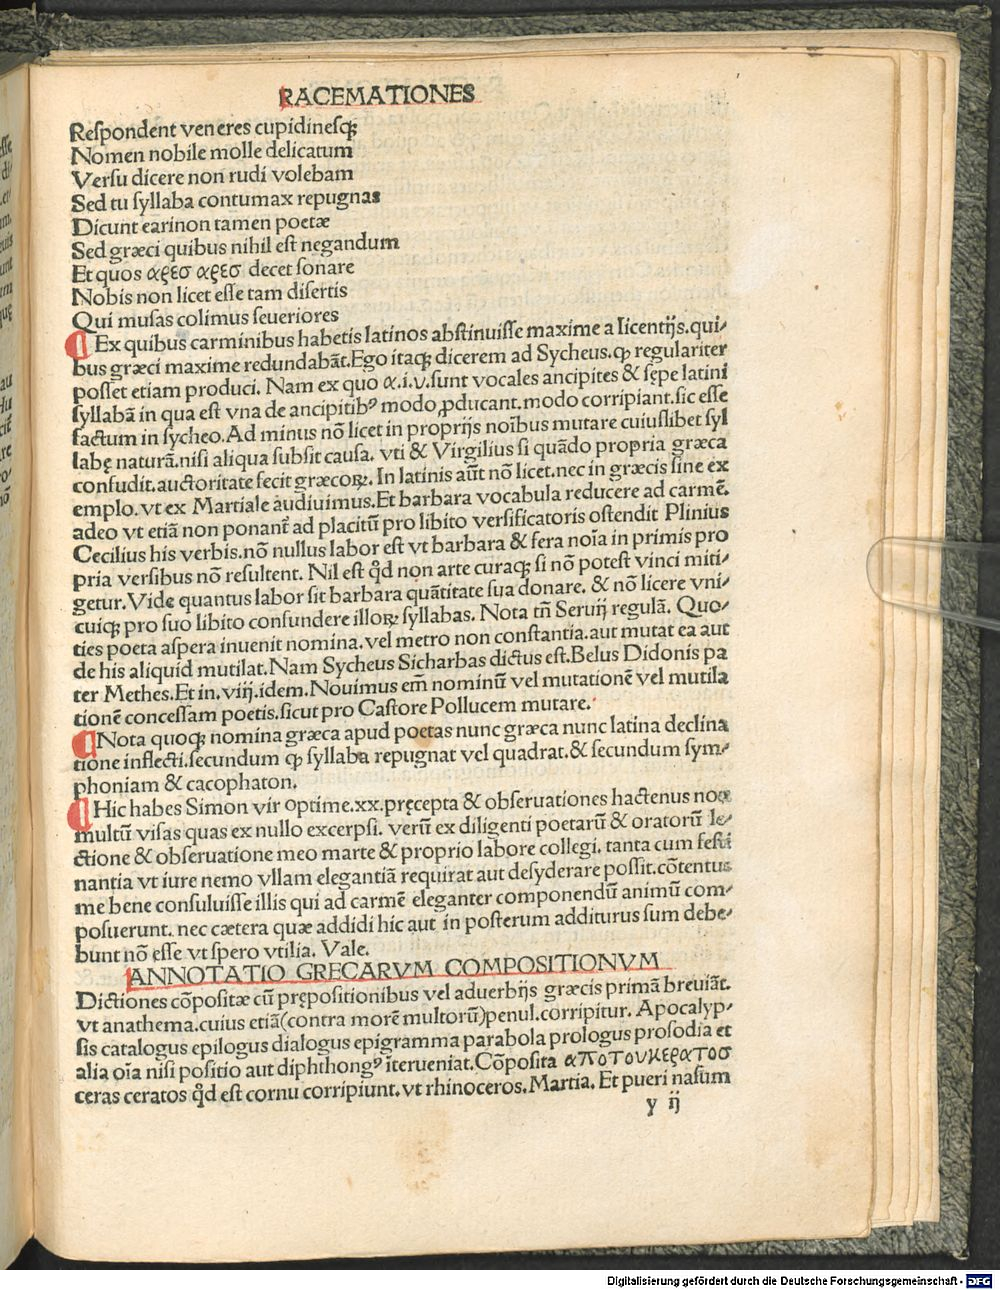 RACEMATIONES
Respondent veneres cupidinesqꝫ
Nomen nobile molle delicatum
Versu dicere non rudi volebam
Sed tu ſyllaba contumax repugnas
Dicunt earinon tamen poetæ
Sed græci quibus nihil eſt negandum
Et quos αρεσ αρεσ decet ſonare
Nobis non licet eſſe tam diſertis
Qui muſas colimus ſeueriores
¶ Ex quibus carminibus habetis latinos abſtinuiſſe maxime a licentijs.qui⸗
bus græci maxime redundabãt.Ego itaqꝫ dicerem ad Sycheus.ꝙ regulariter
poſſet etiam produci. Nam ex quo α.ι.υ.ſunt vocales ancipites & ſępe latini
ſyllabã in qua eſt vna de ancipitibꝰ modo ꝓducant.modo corripiant.ſic eſſe
factum in ſycheo.Ad minus nõ licet in proprijs noĩbus mutare cuiuſlibet ſyl
labę naturã.niſi aliqua ſubſit cauſa. vti & Virgilius ſi quãdo propria græca
confudit.auctoritate fecit græcoꝝ. In latinis aũt nõ licet.nec in græcis ſine ex
emplo.vt ex Martiale audiuimus.Et barbara vocabula reducere ad carmẽ.
adeo vt etiã non ponant̃ ad placitũ pro libito verſificatoris oſtendit Plinius
Cecilius his verbis.nõ nullus labor eſt vt barbara & fera noĩa in primis pro
pria verſibus nõ reſultent. Nil eſt qđ non arte curaqꝫ ſi nõ poteſt vinci miti⸗
getur.Vide quantus labor ſit barbara quãtitate ſua donare. & nõ licere vni⸗
cuiqꝫ pro ſuo libito confundere illoꝝ ſyllabas. Nota tñ Seruij regulã. Quo⸗
ties poeta aſpera inuenit nomina.vel metro non conſtantia.aut mutat ea aut
de his aliquid mutilat.Nam Sycheus Sicharbas dictus eſt.Belus Didonis pa
ter Methes.Et in.viij.idem.Nouimus em̃ nominũ vel mutationẽ vel mutila
tionẽ conceſſam poetis.ſicut pro Caſtore Pollucem mutare.
¶ Nota quoqꝫ nomina græca apud poetas nunc græca nunc latina declina
tione inflecti.ſecundum ꝙ ſyllaba repugnat vel quadrat.& ſecundum ſym⸗
phoniam & cacophaton.
¶ Hic habes Simon vir optime.xx.pręcepta & obſeruationes hactenus non
multũ viſas quas ex nullo excerpſi. verũ ex diligenti poetarũ & oratorũ le⸗
ctione & obſeruatione meo marte & proprio labore collegi. tanta cum feſti
nantia vt iure nemo vllam elegantiã requirat aut deſyderare poſſit.cõtentus
me bene conſuluiſſe illis qui ad carmẽ eleganter componendũ animũ com⸗
poſuerunt. nec cætera quæ addidi hic aut in poſterum additurus ſum debe⸗
bunt nõ eſſe vt ſpero vtilia. Vale.
ANNOTATIO GRECARVM COMPOSITIONVM
Dictiones cõpoſitæ cũ prępoſitionibus vel aduerbijs græcis primã breuiãt.
vt anathema.cuius etiã(contra morẽ multorũ)penul.corripitur. Apocalyp⸗
ſis catalogus epilogus dialogus epigramma parabola prologus proſodia et
alia oĩa niſi poſitio aut diphthongꝰ ĩterueniat.Cõpoſita αποτουκερατοσ
ceras ceratos qđ eſt cornu corripiunt.vt rhinoceros.Martia. Et pueri naſum
y ij
Digitalisierung gefördert durch die Deutsche Forschungsgemeinschaft - DFG